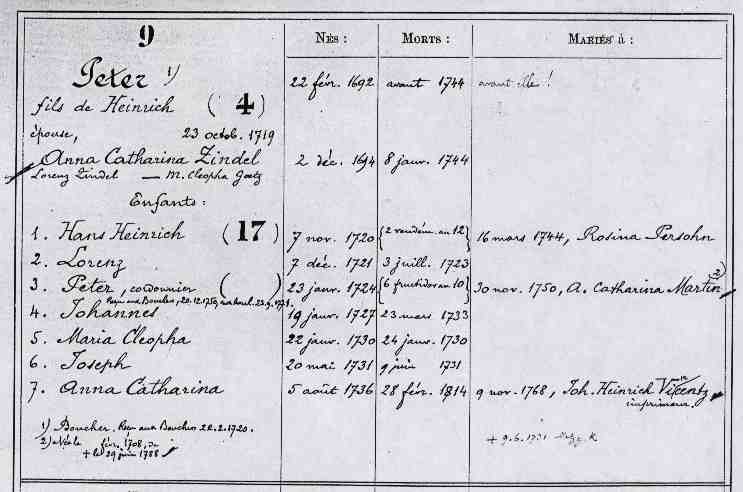 9
NÉS : MORTS : MARIÉS à :
Peter 1) 22 fév. 1692 avant 1744 avant elle !
fils de Heinrich (4)
épouse, 23 octob. 1719
Anna Catharina Zindel 2 déc. 1694 8 janv. 1744
Lorenz Zindel — M. Cleopha Goetz
Enfants :
1. Hans Heinrich (17) 7 nov. 1720 {2 vendém. an 12} 16 mars 1744, Rosina Persohn
2. Lorenz 7 déc. 1721 3 juill. 1723
3. Peter, cordonnier ( ) 23 janv. 1724 {6 fructidor an 10} 30 nov. 1750, A. Catharina Martin 2)
Reçu aux Bouchers, 20.12.1750,
4. Johannes 19 janv. 1727 23 mars 1733
5. Maria Cleopha 22 janv. 1730 24 janv. 1730
6. Joseph 20 mai 1731 9 juin 1731
7. Anna Catharina 5 août 1736 28 fév. 1814 9 nov. 1768, Joh. Heinrich
imprimeur
1) Boucher. Reçu aux Bouchers 22.2.1720.
2) Née le fév. 1708,
+ le 29 juin 1788
+ 9.6.1731